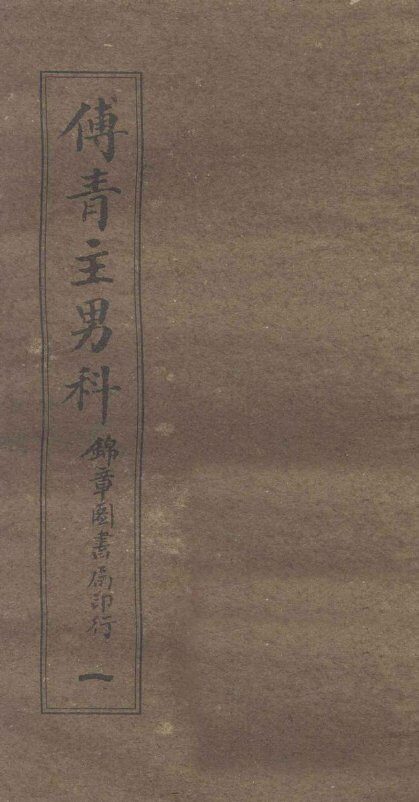 傅青主男科 錦章圖書局印行 一